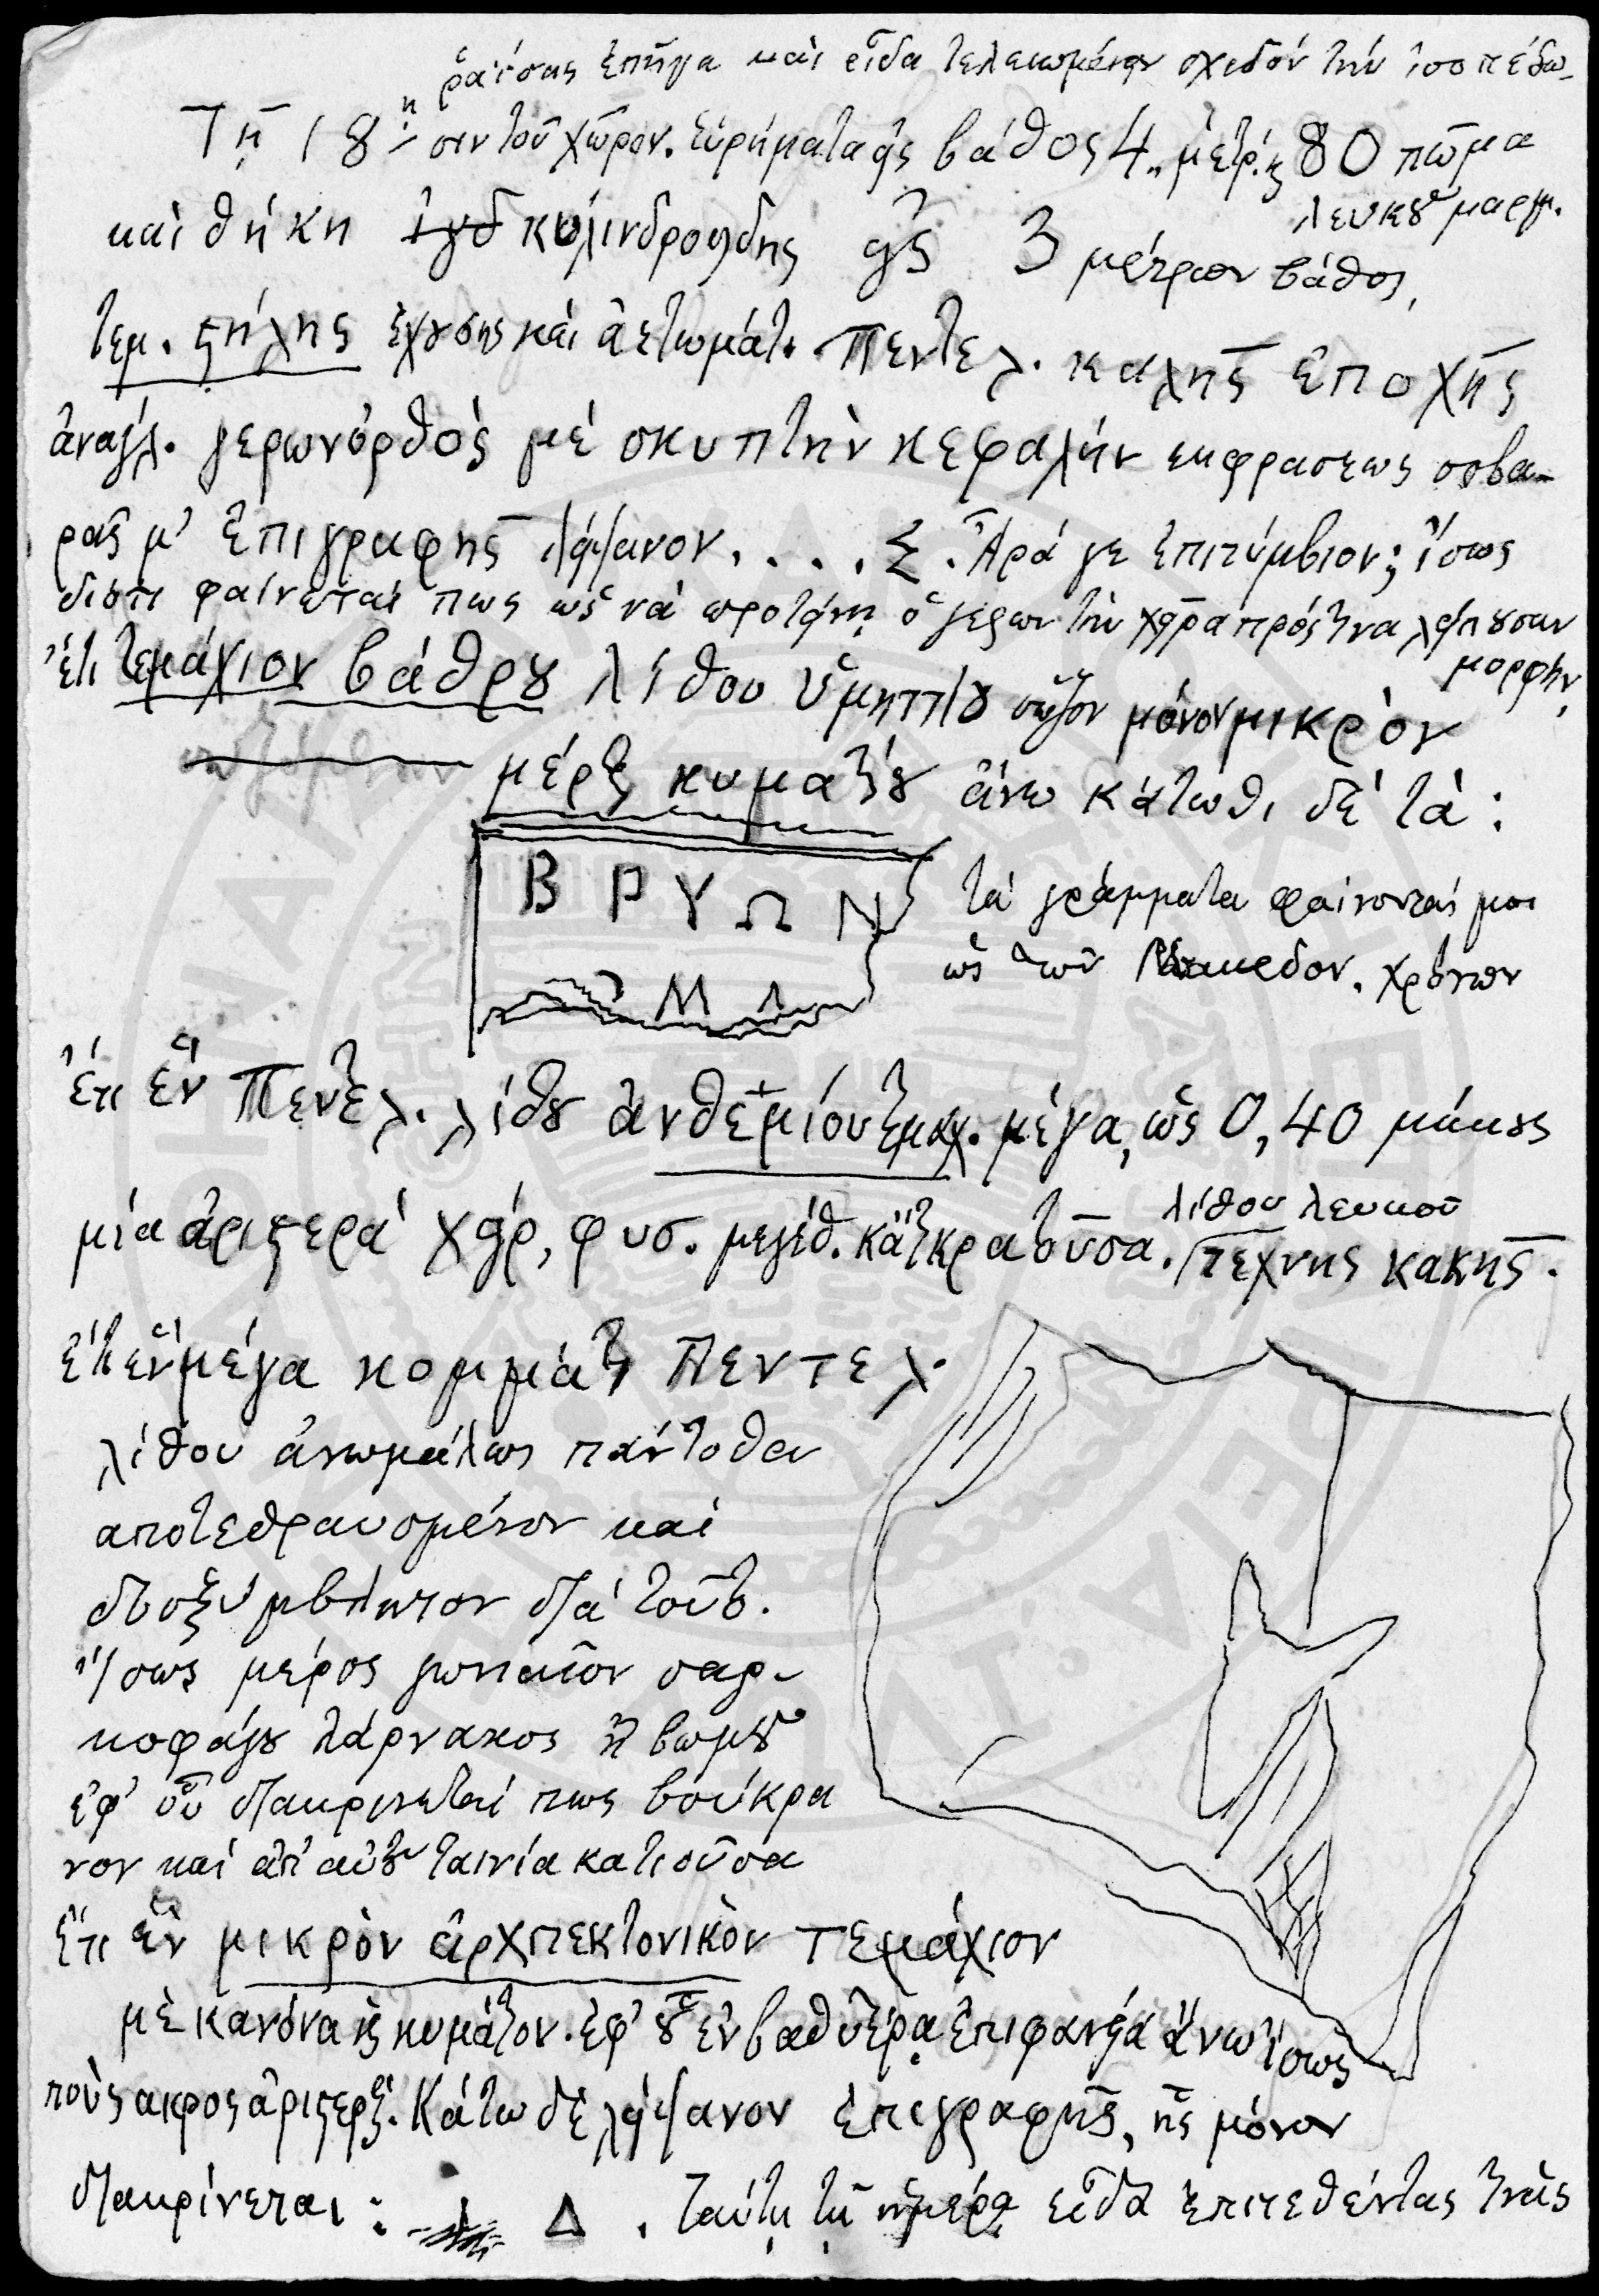 ἐπῆγα καὶ εἶδα τελειωμένην σχεδόν τὴν ἰσοπέδω-
Τῇ 18ῃ σιν τοῦ χώρου. Εὑρήματα εἰς βάθος 4 μέτρ. καὶ 80 πῶμα
λευκοῦ μαρμ.
καὶ θήκη κυλινδροειδὴς εἰς 3 μέτρων βάθος,
τεμ. στήλης ἐχούσης καὶ ἀετωμάτ. Πεντελ. καλῆς ἐποχῆς
ἀναγλ. γέρων ὀρθὸς μὲ σκυπτὴν κεφαλὴν εκφρασεως σοβα-
ρᾶς μ' ἐπιγραφῆς λείψανον . . . . Σ. Ἆρά γε ἐπιτύμβιον; ἴσως
διότι φαίνεται πως ὡς νὰ προτείνῃ ὁ γέρων τὴν χεῖρα πρός τινα λείπουσαν
μορφήν.
ἔτι τεμάχιον βάθρου λίθου ὑμηττίου σῶζον μόνον μικρὸν
μέρος κυματίου ἄνω κάτωθι δὲ τὰ :
Β Ρ Υ Ω Ν
Μ Λ
τὰ γράμματα φαίνονταί μοι
ὡς τῶν Μακεδον. χρόνων
ἔτι ἓν Πεντελ. λίθου ἀνθεμίου τεμαχ. μέγα, ὡς 0,40 μήκους
μία ἀριστερὰ χείρ, φυσ. μεγέθ. κάτι κρατοῦσα. λίθου λευκοῦ τέχνης κακῆς.
ἔτι ἓν μέγα κομμάτι Πεντελ.
λίθου ἀνωμάλως πάντοθεν
αποτεθραυσμένον καὶ
δυσξύμβλητον διὰ τοῦτο.
Ἴσως μέρος γωνιαῖον σαρ-
κοφάγου λάρνακος ἢ βωμοῦ
ἐφ' οὗ διακρίνεταί πως βούκρα
νον καὶ ἀπ' αὐτοῦ ταινία κατιοῦσα
ἔτι ἓν μικρὸν ἀρχιτεκτονικὸν τεμάχιον
μὲ κανόνα καὶ κυμάτιον. ἐφ' οὗ ἐν βαθυτέρᾳ ἐπιφανείᾳ ἄνω ἴσως
ποὺς ακρος ἀριστερός. Κάτω δὲ λείψανον ἐπιγραφῆς, ἧς μόνον
διακρίνεται : Δ . Ταύτῃ τῇ ἡμέρᾳ εἶδα ἐπιτεθέντας τινὰς